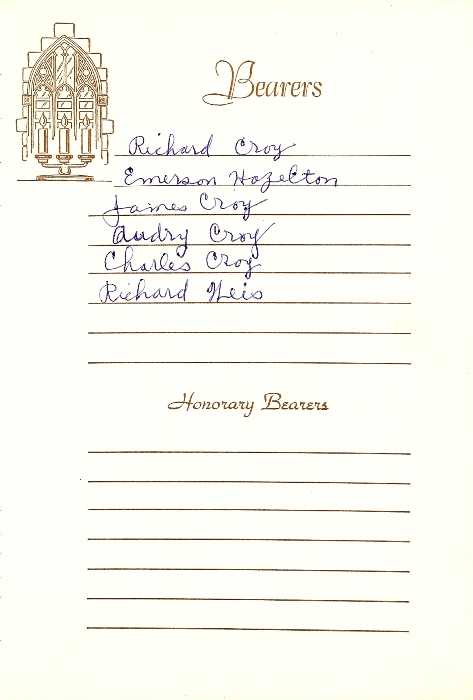 Bearers
Richard Croy
Emerson Hazelton
James Croy
Audry Croy
Charles Croy
Richard Neis
Honorary Bearers